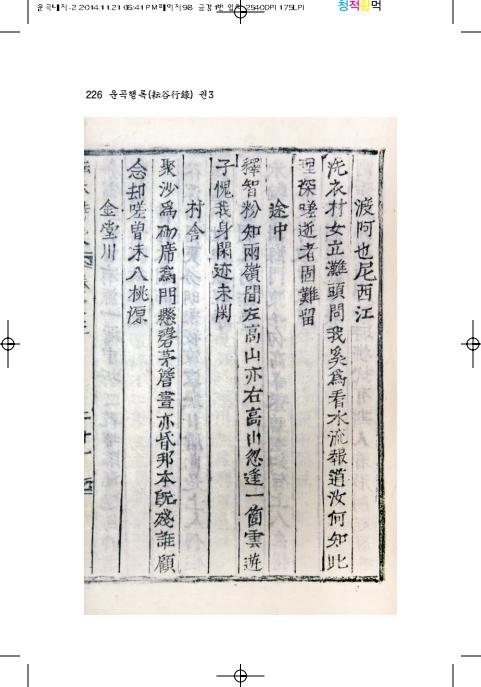 운곡내지-2 2014.11.21 05:41 PM 페이지98
2540DPI 175LPI
청적황먹
226 운곡행록(耘谷行錄) 권3
渡阿也尼西江
洗衣村女立灘頭問我奚爲看水流報道汝何知此
理深嗟逝者固難留
途中
釋智粉知兩嶺間左高山亦右高山忽逢一箇雲遊
子愧我身閑迹未閑
村舍
聚沙爲砌席爲門懸磬茅簷晝亦昏邦本旣殘誰顧
念却嗟曾未入桃源
金堂川